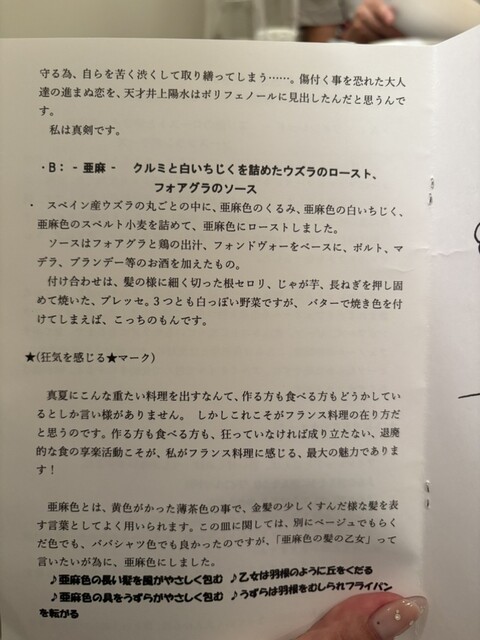 守る為、自らを苦く渋くして取り繕ってしまう……。傷付く事を恐れた大人
達の進まぬ恋を、天才井上陽水はポリフェノールに見出したんだと思うんで
す。
私は真剣です。
・B： - 亜麻 - クルミと白いちじくを詰めたウズラのロースト、
フォアグラのソース
・ スペイン産ウズラの丸ごとの中に、亜麻色のくるみ、亜麻色の白いちじく、
亜麻色のスペルト小麦を詰めて、亜麻色にローストしました。
ソースはフォアグラと鶏の出汁、フォンドヴォーをベースに、ポルト、マ
デラ、ブランデー等のお酒を加えたもの。
付け合わせは、髪の様に細く切った根セロリ、じゃが芋、長ねぎを押し固
めて焼いた、プレッセ。3つとも白っぽい野菜ですが、バターで焼き色を付
けてしまえば、こっちのもんです。
★(狂気を感じる★マーク)
真夏にこんな重たい料理を出すなんて、作る方も食べる方もどうかしてい
るとしか言い様がありません。 しかしこれこそがフランス料理の在り方だ
と思うのです。作る方も食べる方も、狂っていなければ成り立たない、退廃
的な食の享楽活動こそが、私がフランス料理に感じる、最大の魅力でありま
す！
亜麻色とは、黄色がかった薄茶色の事で、金髪の少しくすんだ様な髪を表
す言葉としてよく用いられます。この皿に関しては、別にベージュでもらく
だ色でも、ババシャツ色でも良かったのですが、「亜麻色の髪の乙女」って
言いたいが為に、亜麻色にしました。
♪亜麻色の長い髪を風がやさしく包む ♪乙女は羽根のように丘をくだる
♪亜麻色の具をうずらがやさしく包む ♪うずらは羽根をむしられフライパン
を転がる